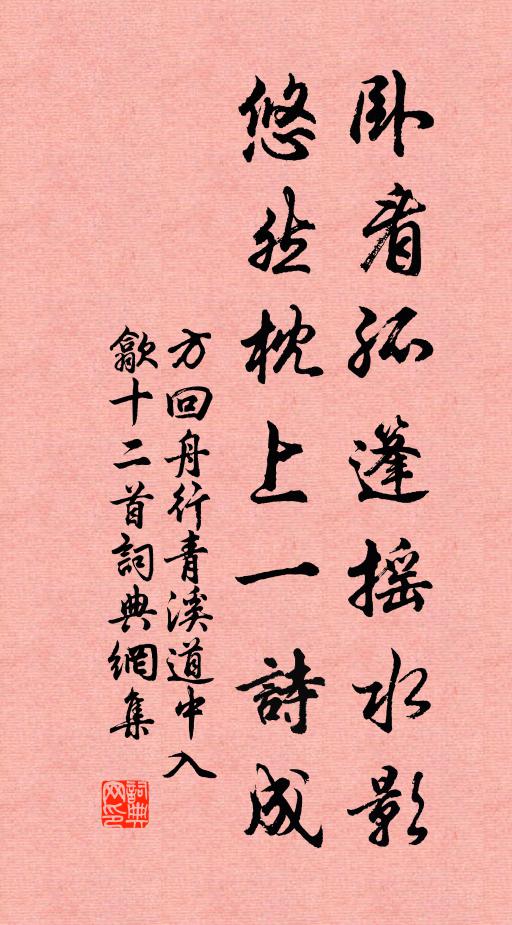 卧看孤篷摇水影
悠然枕上一詩成
方回舟行青溪道中入
歙十二首詞典網集
詞典网印